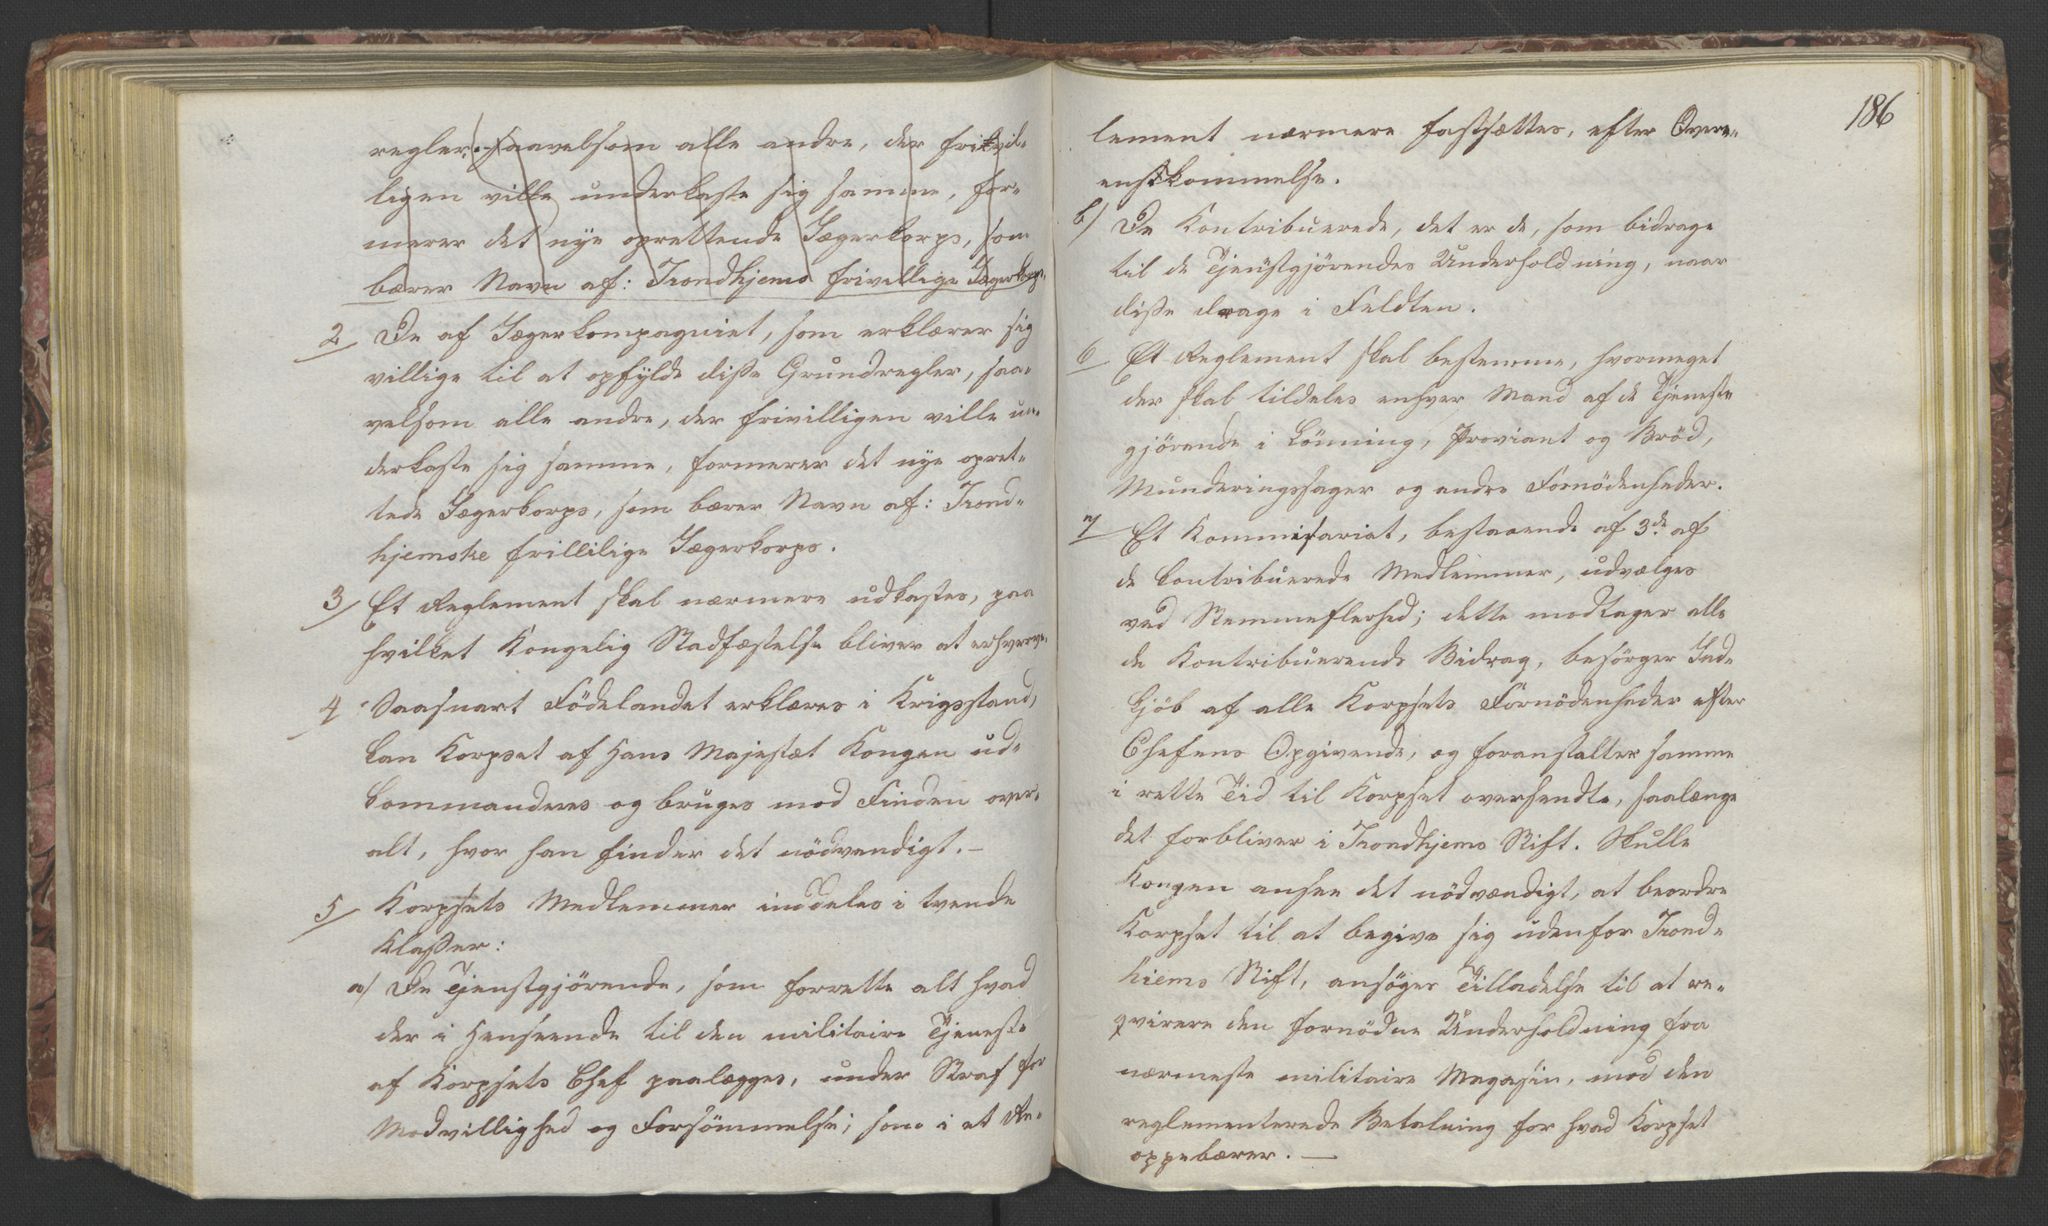 regler, saavelsom alle andre, der frivil-
ligen ville underkaste sig samme, for-
merer det nye oprettende Jægerkorps, som
bærer Navn af: Trondhjems frivillige Jægerkorps.
2 De af Jægerkompagniet, som erklærer sig
villige til at opfylde disse Grundregler, saa-
velsom alle andre, der frivilligen ville un-
derkaste sig samme, formerer det nye opret-
tede Jægerkorps, som bærer Navn af: Trond-
hjemske frillilige Jægerkorps.
3 Et Reglement skal nærmere udkastes, paa
hvilket Kongelig Stadfæstelse bliver at erhverve.
4 Saasnart Födelandet erklæres i Krigsstand,
kan Korpset af Hans Majestæt Kongen ud-
kommanderes og bruges mod Finden over-
alt, hvor han finder det nödvendigt. —
5 Korpsets Medlemmer inddeles i tvende
Klasser:
a) De Tjenstgjörende, som forrette alt hvad
der i Henseende til den militaire Tjeneste
af Korpsets Chef paalægges, under Straf for
Modvillighed og Forsömmelse; som i et Re-
186
lement nærmere fastsættes, efter Overe-
enskommelse.
b) De Kontribuerede, det er de, som bidrage
til de Tjenstgjörendes Underholdning, naar
disse drage i Feldten.
6 Et Reglement skal bestemme, hvormeget
der skal tildeles enhver Mand af de Tjeneste
gjörende i Lönning, Proviant og Bröd,
Munderingssager og andre Fornödenheder.
7 Et Kommisariat, bestaaende af 3de af
de kontribuerede Medlemmer, udvælges
ved Stemmeflerhed; dette modtager alle
de Kontribuerende Bidrag, besörger Ind-
kjöb af alle Korpsets Fornödenheder efter
Chefens Opgivende, og foranstalter samme
i rette Tid til Korpset oversendte, saalænge
det forbliver i Trondhjems Stift. Skulle
Kongen ansee det nödvændigt, at beordre
Korpset til at begive sig udenfor Trond-
hiems Stift, ansöges Tilladelse til at re-
qvirere den fornödne Underholdning fra
nærmeste militaire Magasin, mod den
reglementerede Betalning for hvad Korpset
oppebærer. —